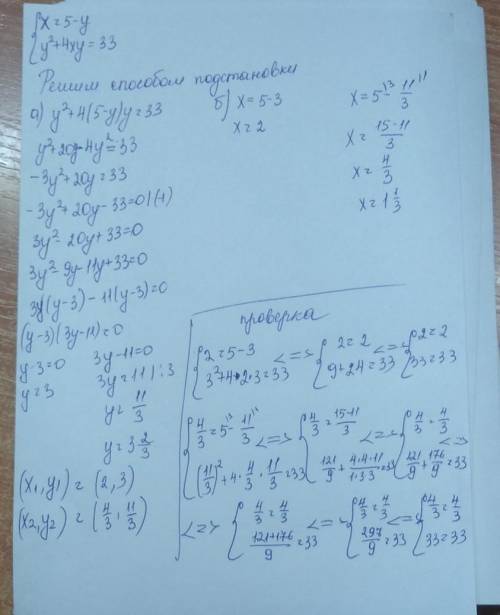 { x=5-y
{ y²+4xy=33
Решим способом подстановки
а) y²+4(5-y)y=33
y²+20y-4y²=33
-3y²+20y=33
-3y²+20y-33=0 |(-1)
3y²-20y+33=0
3y²-9y-11y+33=0
3y(y-3)-11(y-3)=0
(y-3)(3y-11)=0
y-3=0 3y-11=0
y=3 3y=11 |:3
y=11/3
y=3 2/3
(x₁,y₁)=(2,3)
(x₂,y₂)=(4/3, 11/3)
б) x=5-3
x=2
x=5-11/3
x=(15-11)/3
x=4/3
x=1 1/3
проверка
{ 2=5-3 <=> { 2=2 <=> { 2=2
{ 3²+4·2·3=33 { 9+24=33 { 33=33
{ 4/3=5-11/3 <=> { 4/3=(15-11)/3 <=> { 4/3=4/3 <=>
{ (11/3)²+4·4/3·11/3=33 { 121/9+(4·4·11)/(1·3·3)=33 { 121/9+176/9=33
<=> { 4/3=4/3 <=> { 4/3=4/3 <=> { 4/3=4/3
{ (121+176)/9=33 { 297/9=33 { 33=33